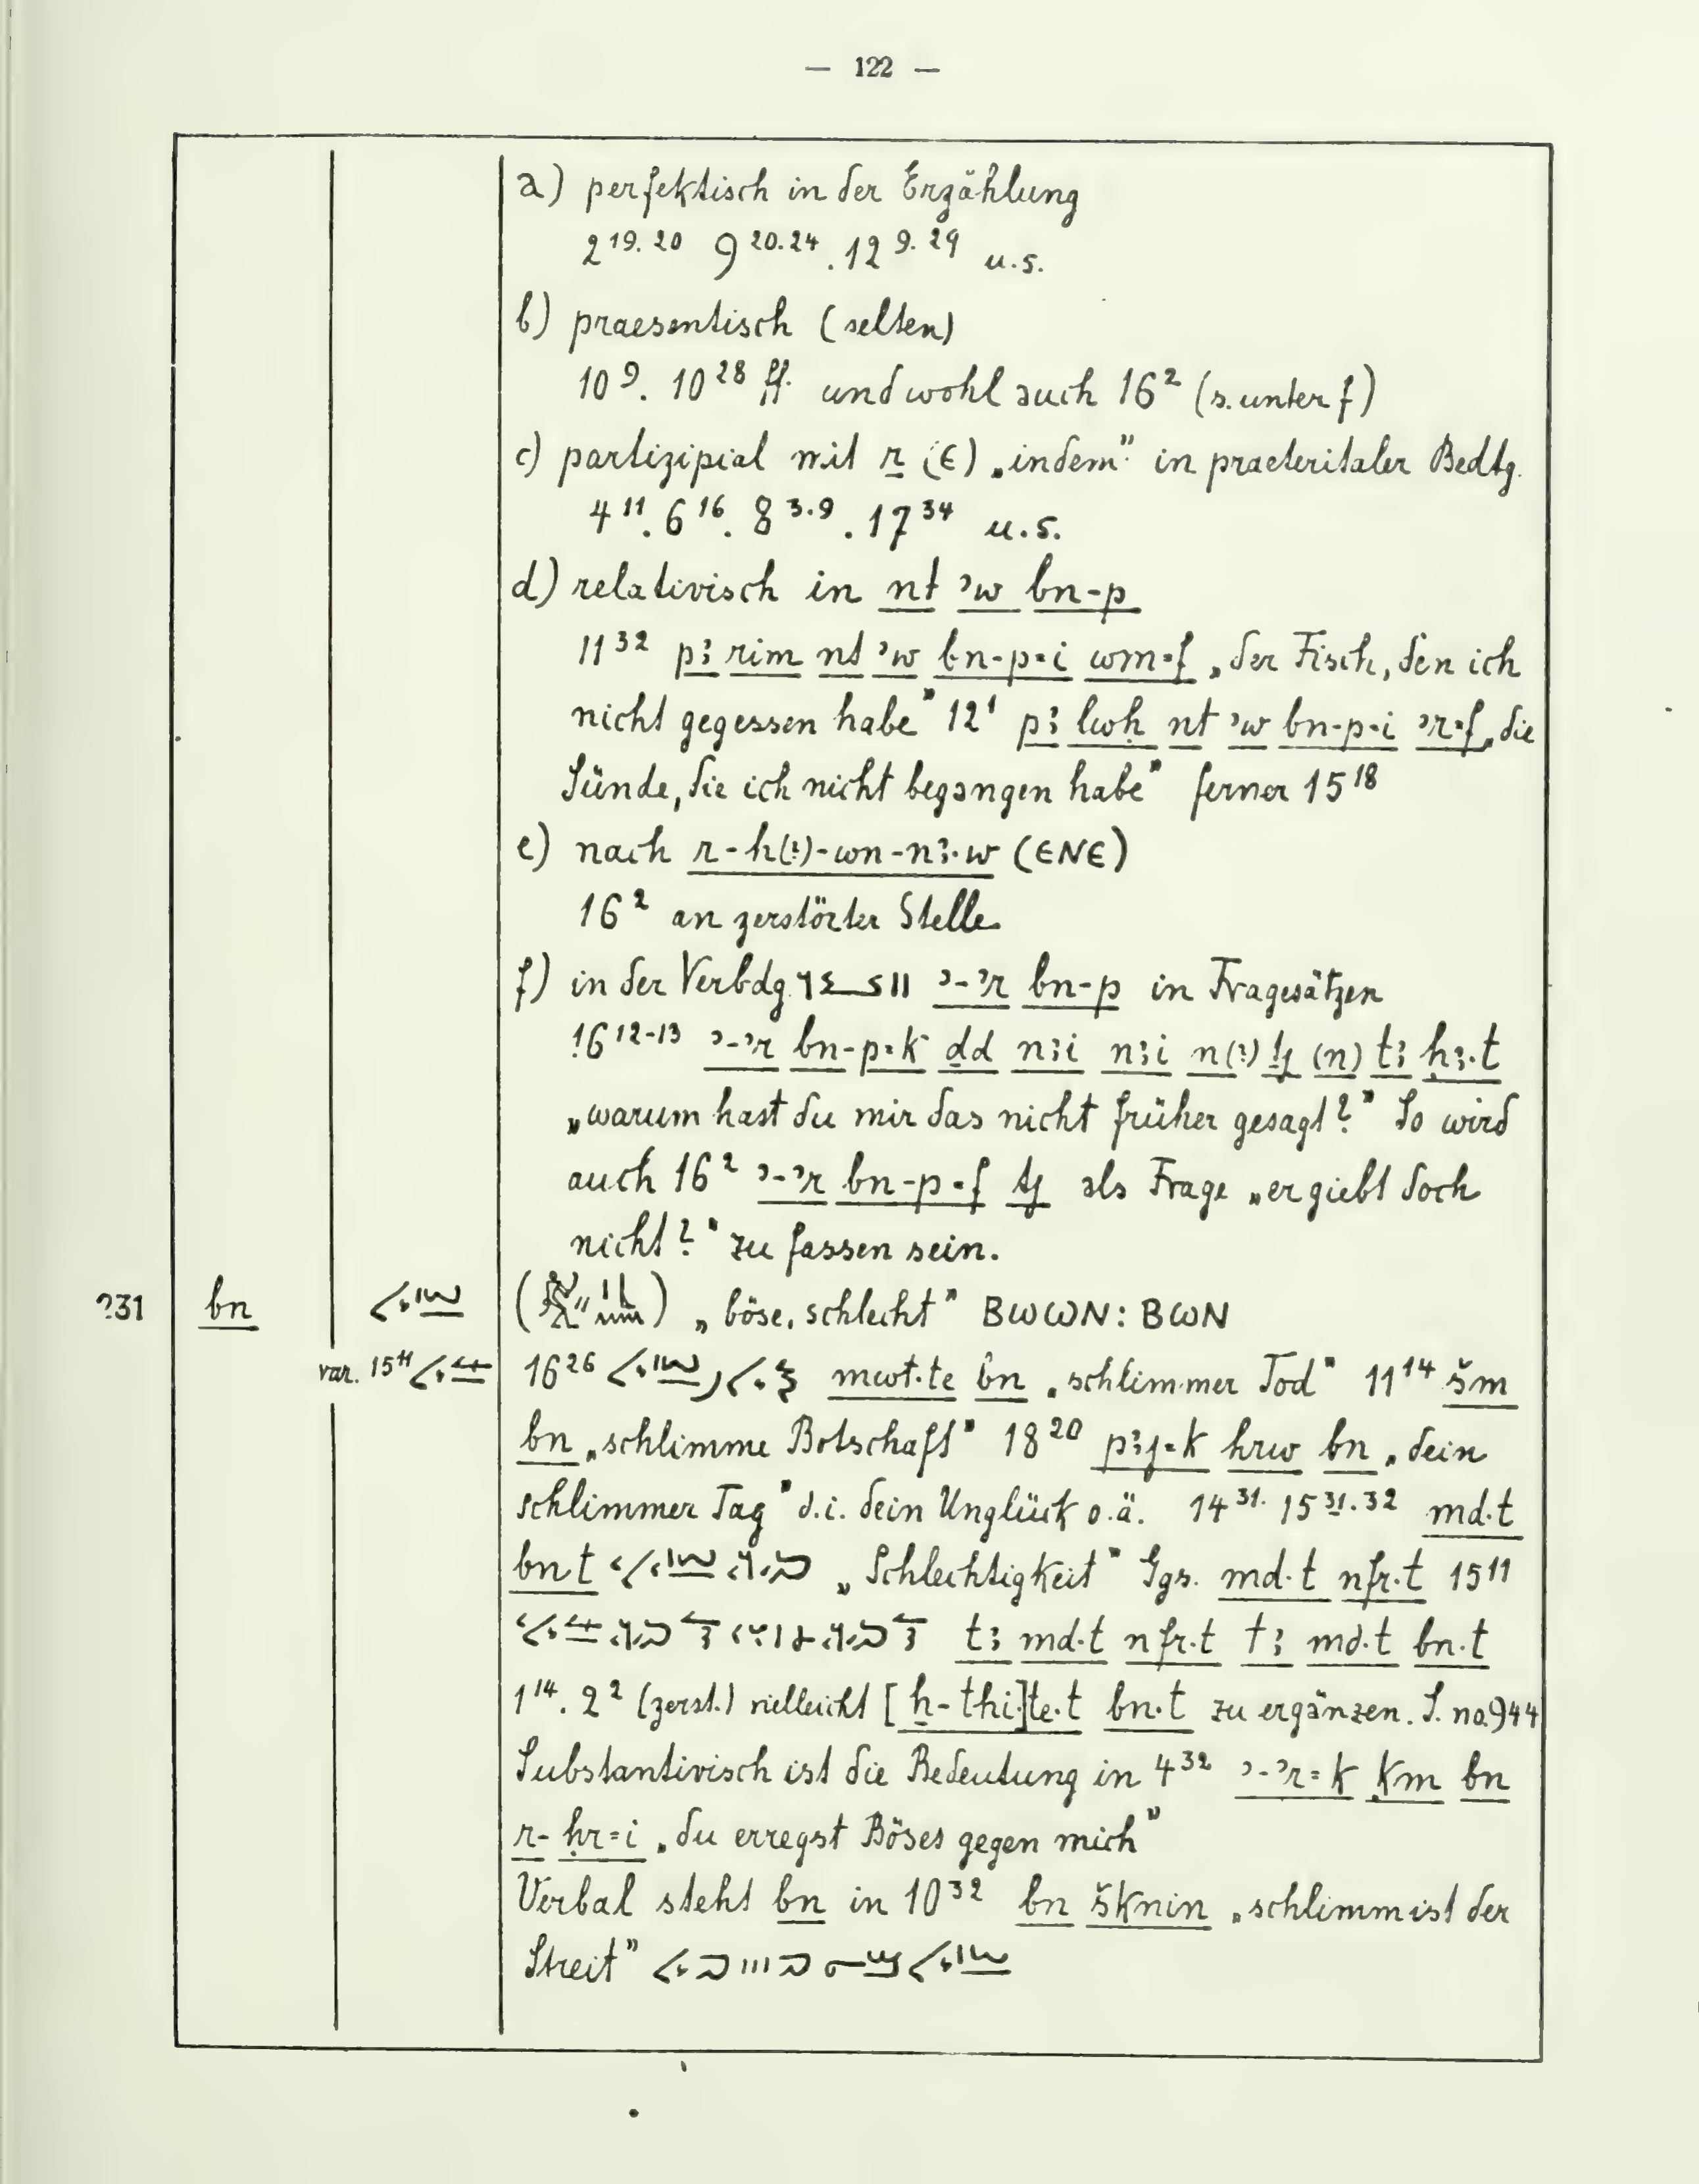 — 122 —
a) perfektisch in der Erzählung
2 19. 20 9 20.24 . 12 9. 29 u.s.
b) praesentisch (selten)
10 9. 10 28 ff. und wohl auch 16 2 (s. unter f)
c) partizipial mit r (ϵ) „indem" in praeteritaler Bedtg.
4 11. 6 16. 8 3.9 . 17 34 u.s.
d) relativisch in nt ʾw bn-p
11 32 pꜣ rim nt ʾw bn-p=i wm=f „der Fisch, den ich
nicht gegessen habe" 12 1 pꜣ lwḫ nt ʾw bn-p-i ʾr=f „die
Sünde, die ich nicht begangen habe" ferner 15 18
e) nach r-h(?)-wn-nꜣ.w (ⲉⲛⲉ)
16 2 an zerstörter Stelle
f) in der Verbdg. ʾ-ʾr bn-p in Fragesätzen
16 12-13 ʾ-ʾr bn-p=k dd nꜣi nꜣi n(?) (n) tꜣ ḥꜣ.t
„warum hast du mir das nicht früher gesagt?" So wird
auch 16 2 ʾ-ʾr bn-p=f als Frage „er giebt doch
nicht?" zu fassen sein.
?31 bn „böse, schlecht" ⲃⲱⲱⲛ: ⲃⲱⲛ
var. 15 11 16 26 mwt.te bn „schlimmer Tod" 11 14 šm
bn „schlimme Botschaft" 18 20 pꜣj=k hrw bn „dein
schlimmer Tag" d.i. dein Unglück o.ä. 14 31. 15 31.32 md.t
bn.t „Schlechtigkeit" Ggs. md.t nfr.t 15 11
tꜣ md.t nfr.t tꜣ md.t bn.t
1 14. 2 2 (zerst.) vielleicht [ḫ-thi]te.t bn.t zu ergänzen. S. no. 944
Substantivisch ist die Bedeutung in 4 32 ʾ-ʾr=k ḳm bn
r-ḥr=i „du erregst Böses gegen mich"
Verbal steht bn in 10 32 bn šknin „schlimm ist der
Streit"